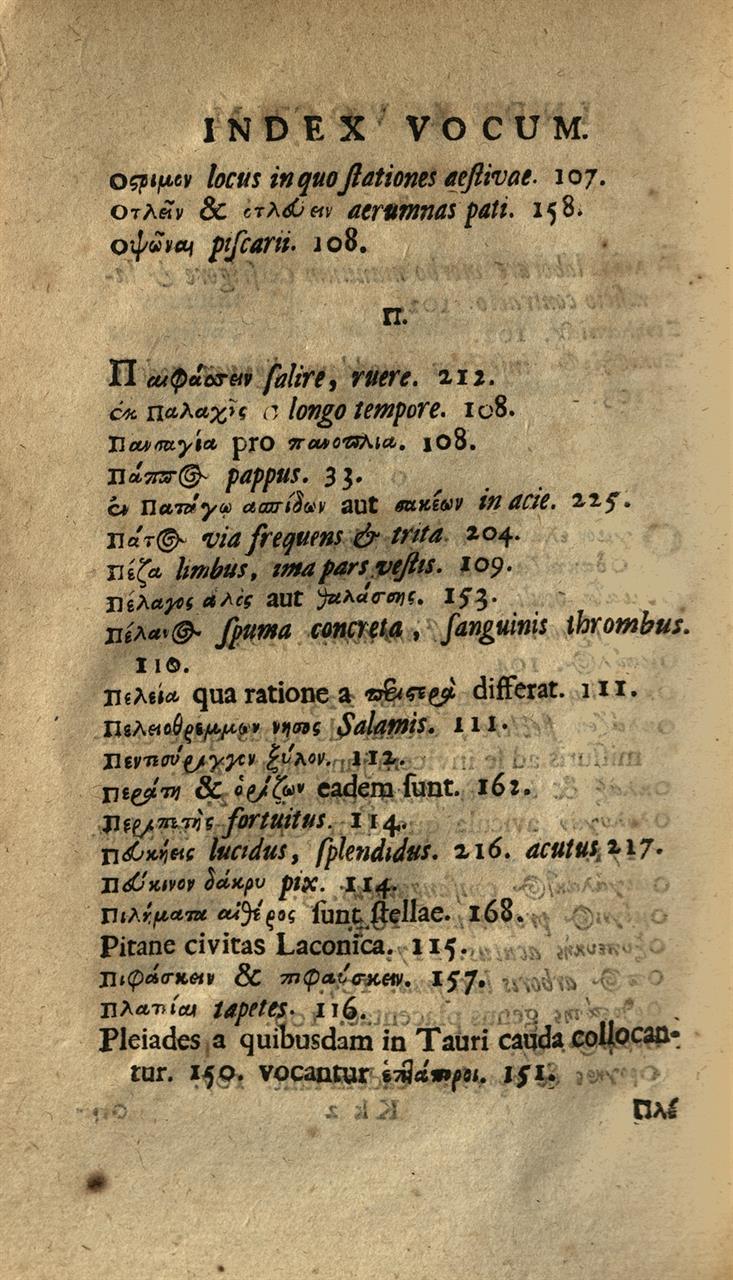 INDEX VOCUM.
Οϛριμον locus in quo ſtationes aeſtivae. 107.
Οτλεῖν & ὀτλεύειν aerumnas pati. 158.
Οψῶναι piſcarii. 108.
Π.
Παιφάσσειν ſalire, ruere. 212.
ἐκ Παλαχῆς a longo tempore. 108.
Πανσαγία pro πανοπλια. 108.
Πάππος pappus. 33.
ἐν Παταγω ασπίδων aut σακέων in acie. 225.
Πάτος via frequens & trita. 204.
Πέζα limbus, ima pars veſtis. 109.
Πέλαγος ἁλὸς aut θαλάσσης. 153.
Πέλανος ſpuma concreta, ſanguinis thrombus.
110.
Πελεία qua ratione a περιστερᾷ differat. 111.
Πελειοθρέμμων νησος Salamis. 111.
Πεντεσύριγγον ξύλον. 112.
Περάτη & ὁρίζων eadem ſunt. 162.
Περιπετὴς fortuitus. 114.
Πευκήεις lucidus, ſplendidus. 216. acutus, 217.
Πεύκινον δάκρυ pix. 114.
Πιλήματα αἰθέρος ſunt ſtellae. 168.
Pitane civitas Laconica. 115.
Πιφάσκειν & πιφαύσκειν. 157.
Πλατίαι tapetes. 116.
Pleiades a quibusdam in Tauri cauda collocan-
tur. 150. vocantur ἑπτάποροι. 151.
Πλέ